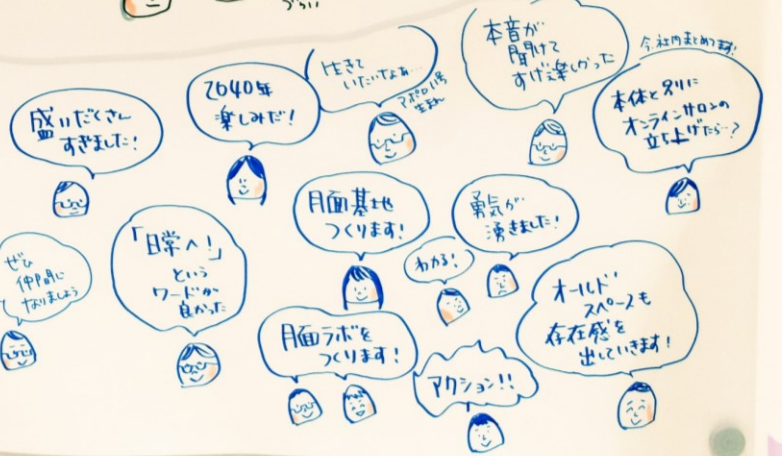 づらい
盛りだくさん
すぎました!
2040年
楽しみだ!
生きて
いたいなぁ…
アポロ11号
生まれ
本音が
聞けて
すげー楽しかった
今、社内まとめてます!
本体と別に
オンラインサロンの
立ち上げたら…?
ぜひ
仲間に
なりましょう
「日常へ!」
という
ワードが
良かった
月面基地
つくります!
わかる!
勇気が
湧きました!
月面ラボを
つくります!
アクション!!
オールド
スペースも
存在感を
出していきます!